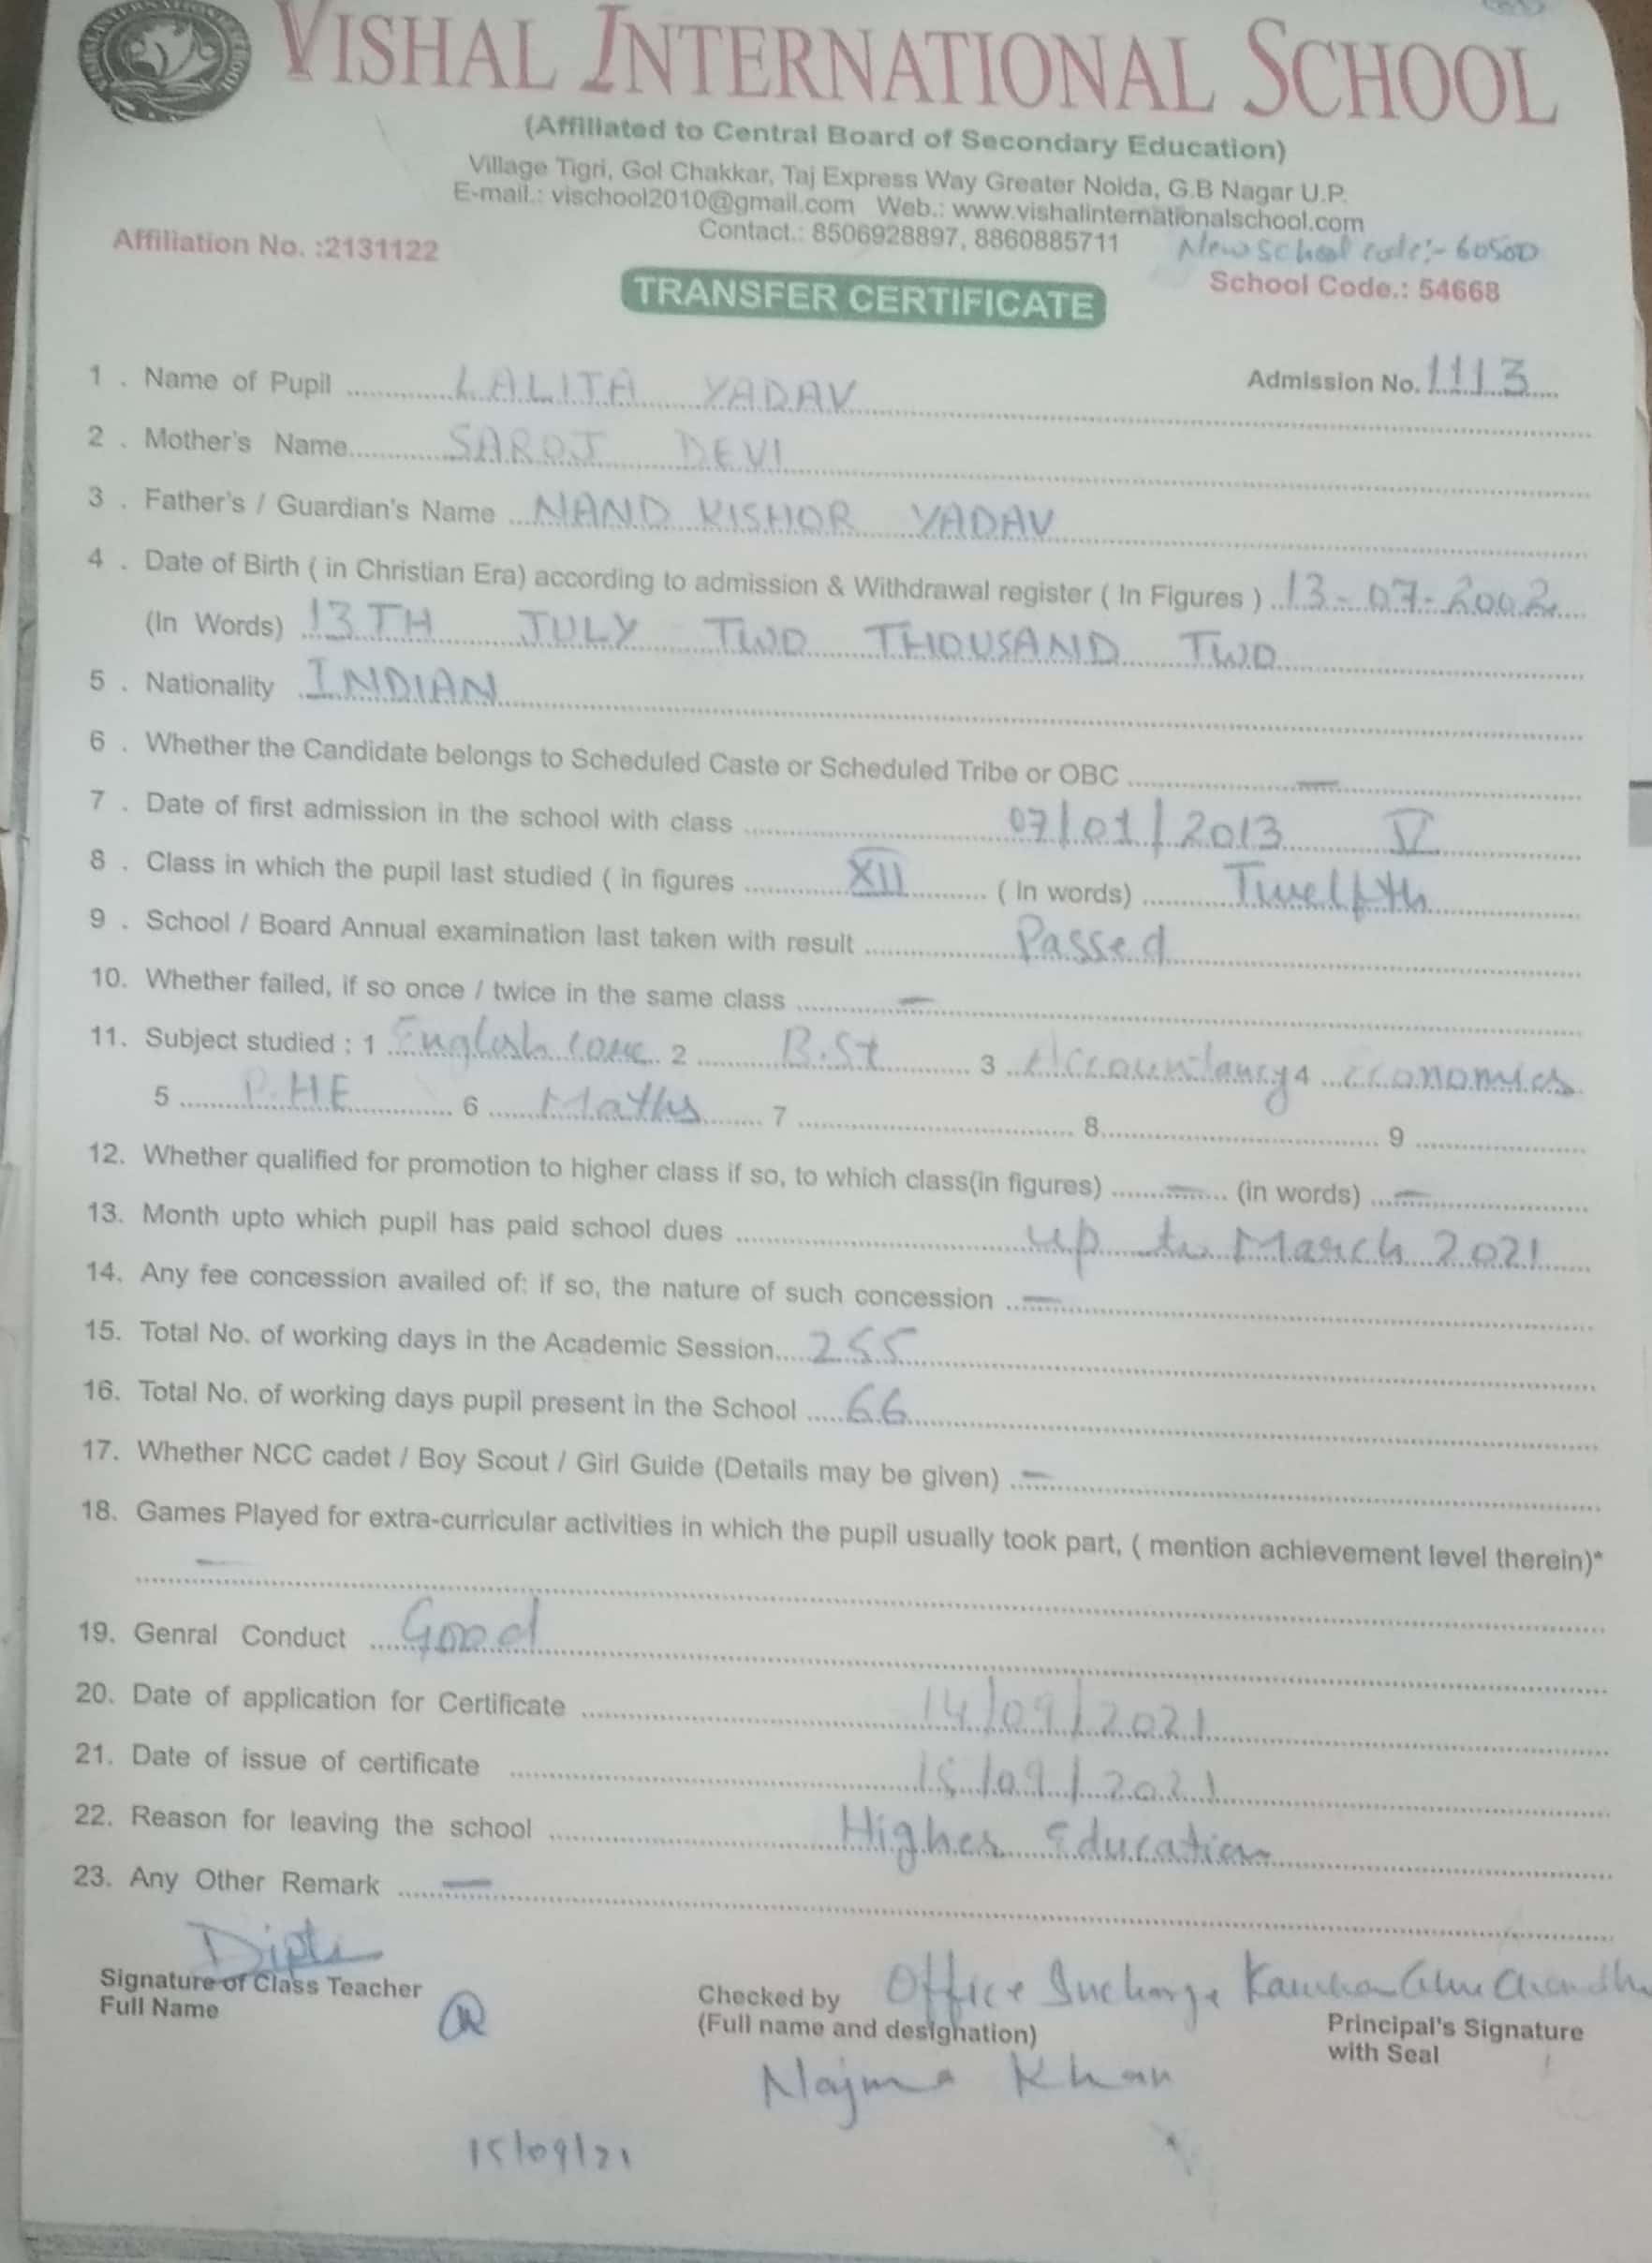 VISHAL INTERNATIONAL SCHOOL
(Affiliated to Central Board of Secondary Education)
Village Tigri, Gol Chakkar, Taj Express Way Greater Noida, G.B Nagar U.P.
E-mail.: vischool2010@gmail.com Web.: www.vishalinternationalschool.com
Contact.: 8506928897, 8860885711
New School code:- 60500
Affiliation No. :2131122
School Code.: 54668
TRANSFER CERTIFICATE
Admission No. 1113
1 . Name of Pupil LALITA YADAV
2 . Mother's Name SAROJ DEVI
3 . Father's / Guardian's Name NAND KISHOR YADAV
4 . Date of Birth ( in Christian Era) according to admission & Withdrawal register ( In Figures ) 13-07-2002
(In Words) 13TH JULY TWO THOUSAND TWO
5 . Nationality INDIAN
6 . Whether the Candidate belongs to Scheduled Caste or Scheduled Tribe or OBC —
7 . Date of first admission in the school with class 07/01/2013 V
8 . Class in which the pupil last studied ( in figures XII ( In words) Twelfth
9 . School / Board Annual examination last taken with result Passed
10. Whether failed, if so once / twice in the same class —
11. Subject studied : 1 English core 2 B.St 3 Accountancy 4 economics
5 P.HE 6 Maths 7 8 9
12. Whether qualified for promotion to higher class if so, to which class(in figures) — (in words) —
13. Month upto which pupil has paid school dues up to March 2021
14. Any fee concession availed of: if so, the nature of such concession —
15. Total No. of working days in the Academic Session 255
16. Total No. of working days pupil present in the School 66
17. Whether NCC cadet / Boy Scout / Girl Guide (Details may be given) —
18. Games Played for extra-curricular activities in which the pupil usually took part, ( mention achievement level therein)*
—
19. Genral Conduct Good
20. Date of application for Certificate 14/09/2021
21. Date of issue of certificate 15/09/2021
22. Reason for leaving the school Higher Education
23. Any Other Remark —
Dipti
Signature of Class Teacher
Full Name
Checked by Office Incharge
(Full name and designation)
Najma Khan
Principal's Signature
with Seal
15/09/21